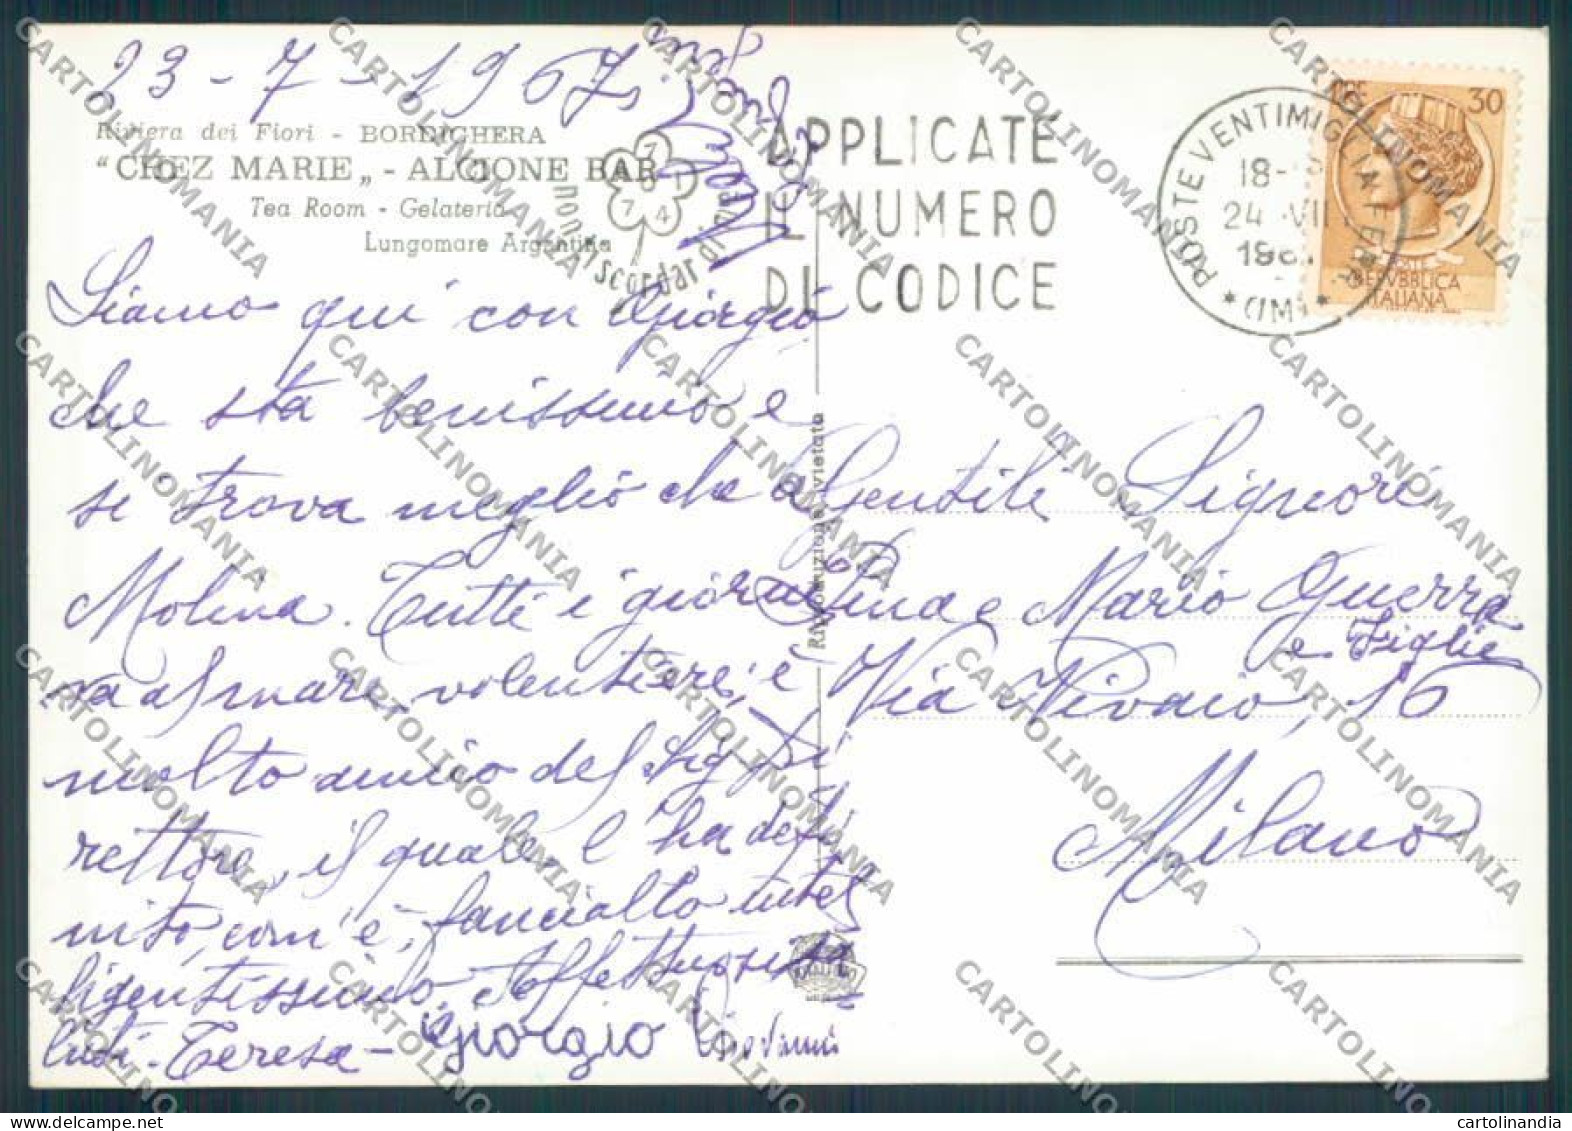 23-7-1967
Riviera dei Fiori - BORDIGHERA
"CHEZ MARIE„ - ALCIONE BAR
Tea Room - Gelateria
Lungomare Argentina
non ti scordar
APPLICATE
IL NUMERO
DI CODICE
POSTE VENTIMIGLIA
24 VII
(IM)
30
REPVBBLICA
ITALIANA
Siamo qui con Giorgio
che sta benissimo e
si trova meglio che a
Molina. Tutti i giorni
va al mare volentieri; è
molto amico del Sig. Di
rettore, il quale l'ha defi
nito, com'è, fanciullo intel
ligentissimo. Affettuosis
Teresa - Giorgio Giovanni
Riproduzione vietata
Gentili Signori
Pina e Mario Guerra
e figlie
Via Vivaio, 16
Milano
CARTOLINOMANIA
cartolinandia